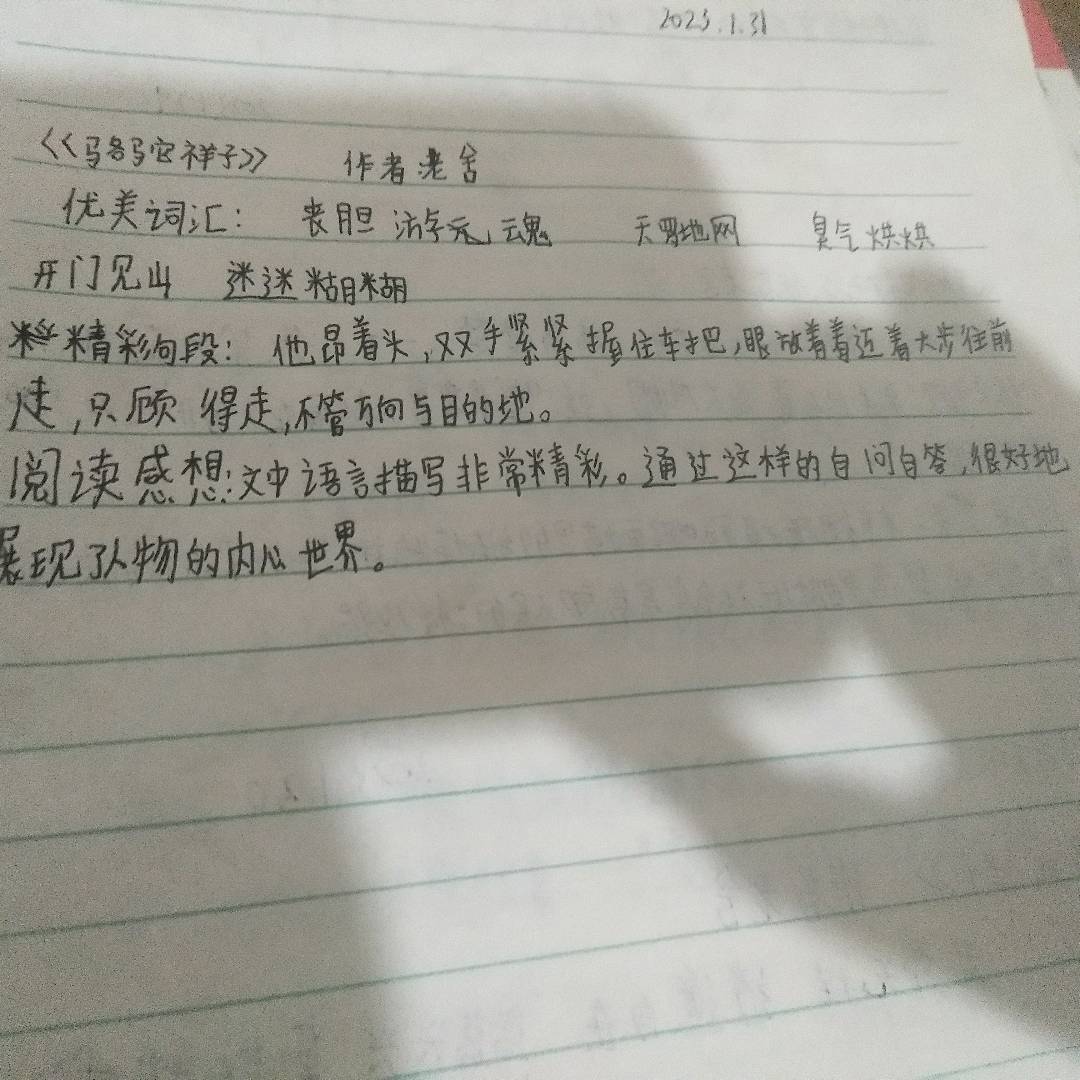 2023.1.31
《骆驼祥子》 作者老舍
优美词汇： 丧胆游魂 天罗地网 臭气烘烘
开门见山 迷迷糊糊
精彩句段：他昂着头，双手紧紧握住车把，眼放着着近着大步往前
走，只顾得走，不管方向与目的地。
阅读感想：文中语言描写非常精彩。通过这样的自问自答，很好地
展现了人物的内心世界。